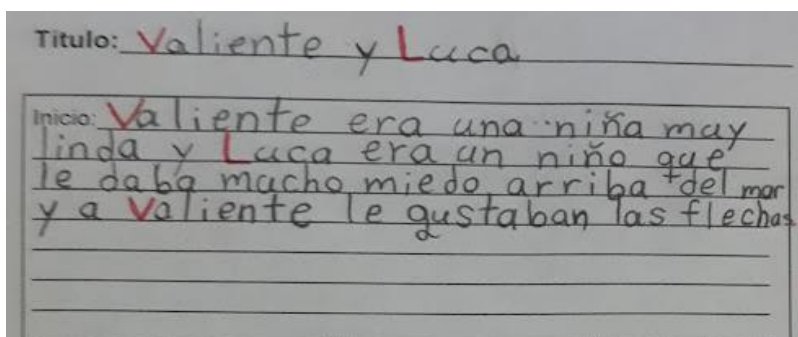 Titulo: Valiente y Luca
Inicio: Valiente era una niña muy
linda y Luca era un niño que
le daba mucho miedo arriba del mar
y a Valiente le gustaban las flechas